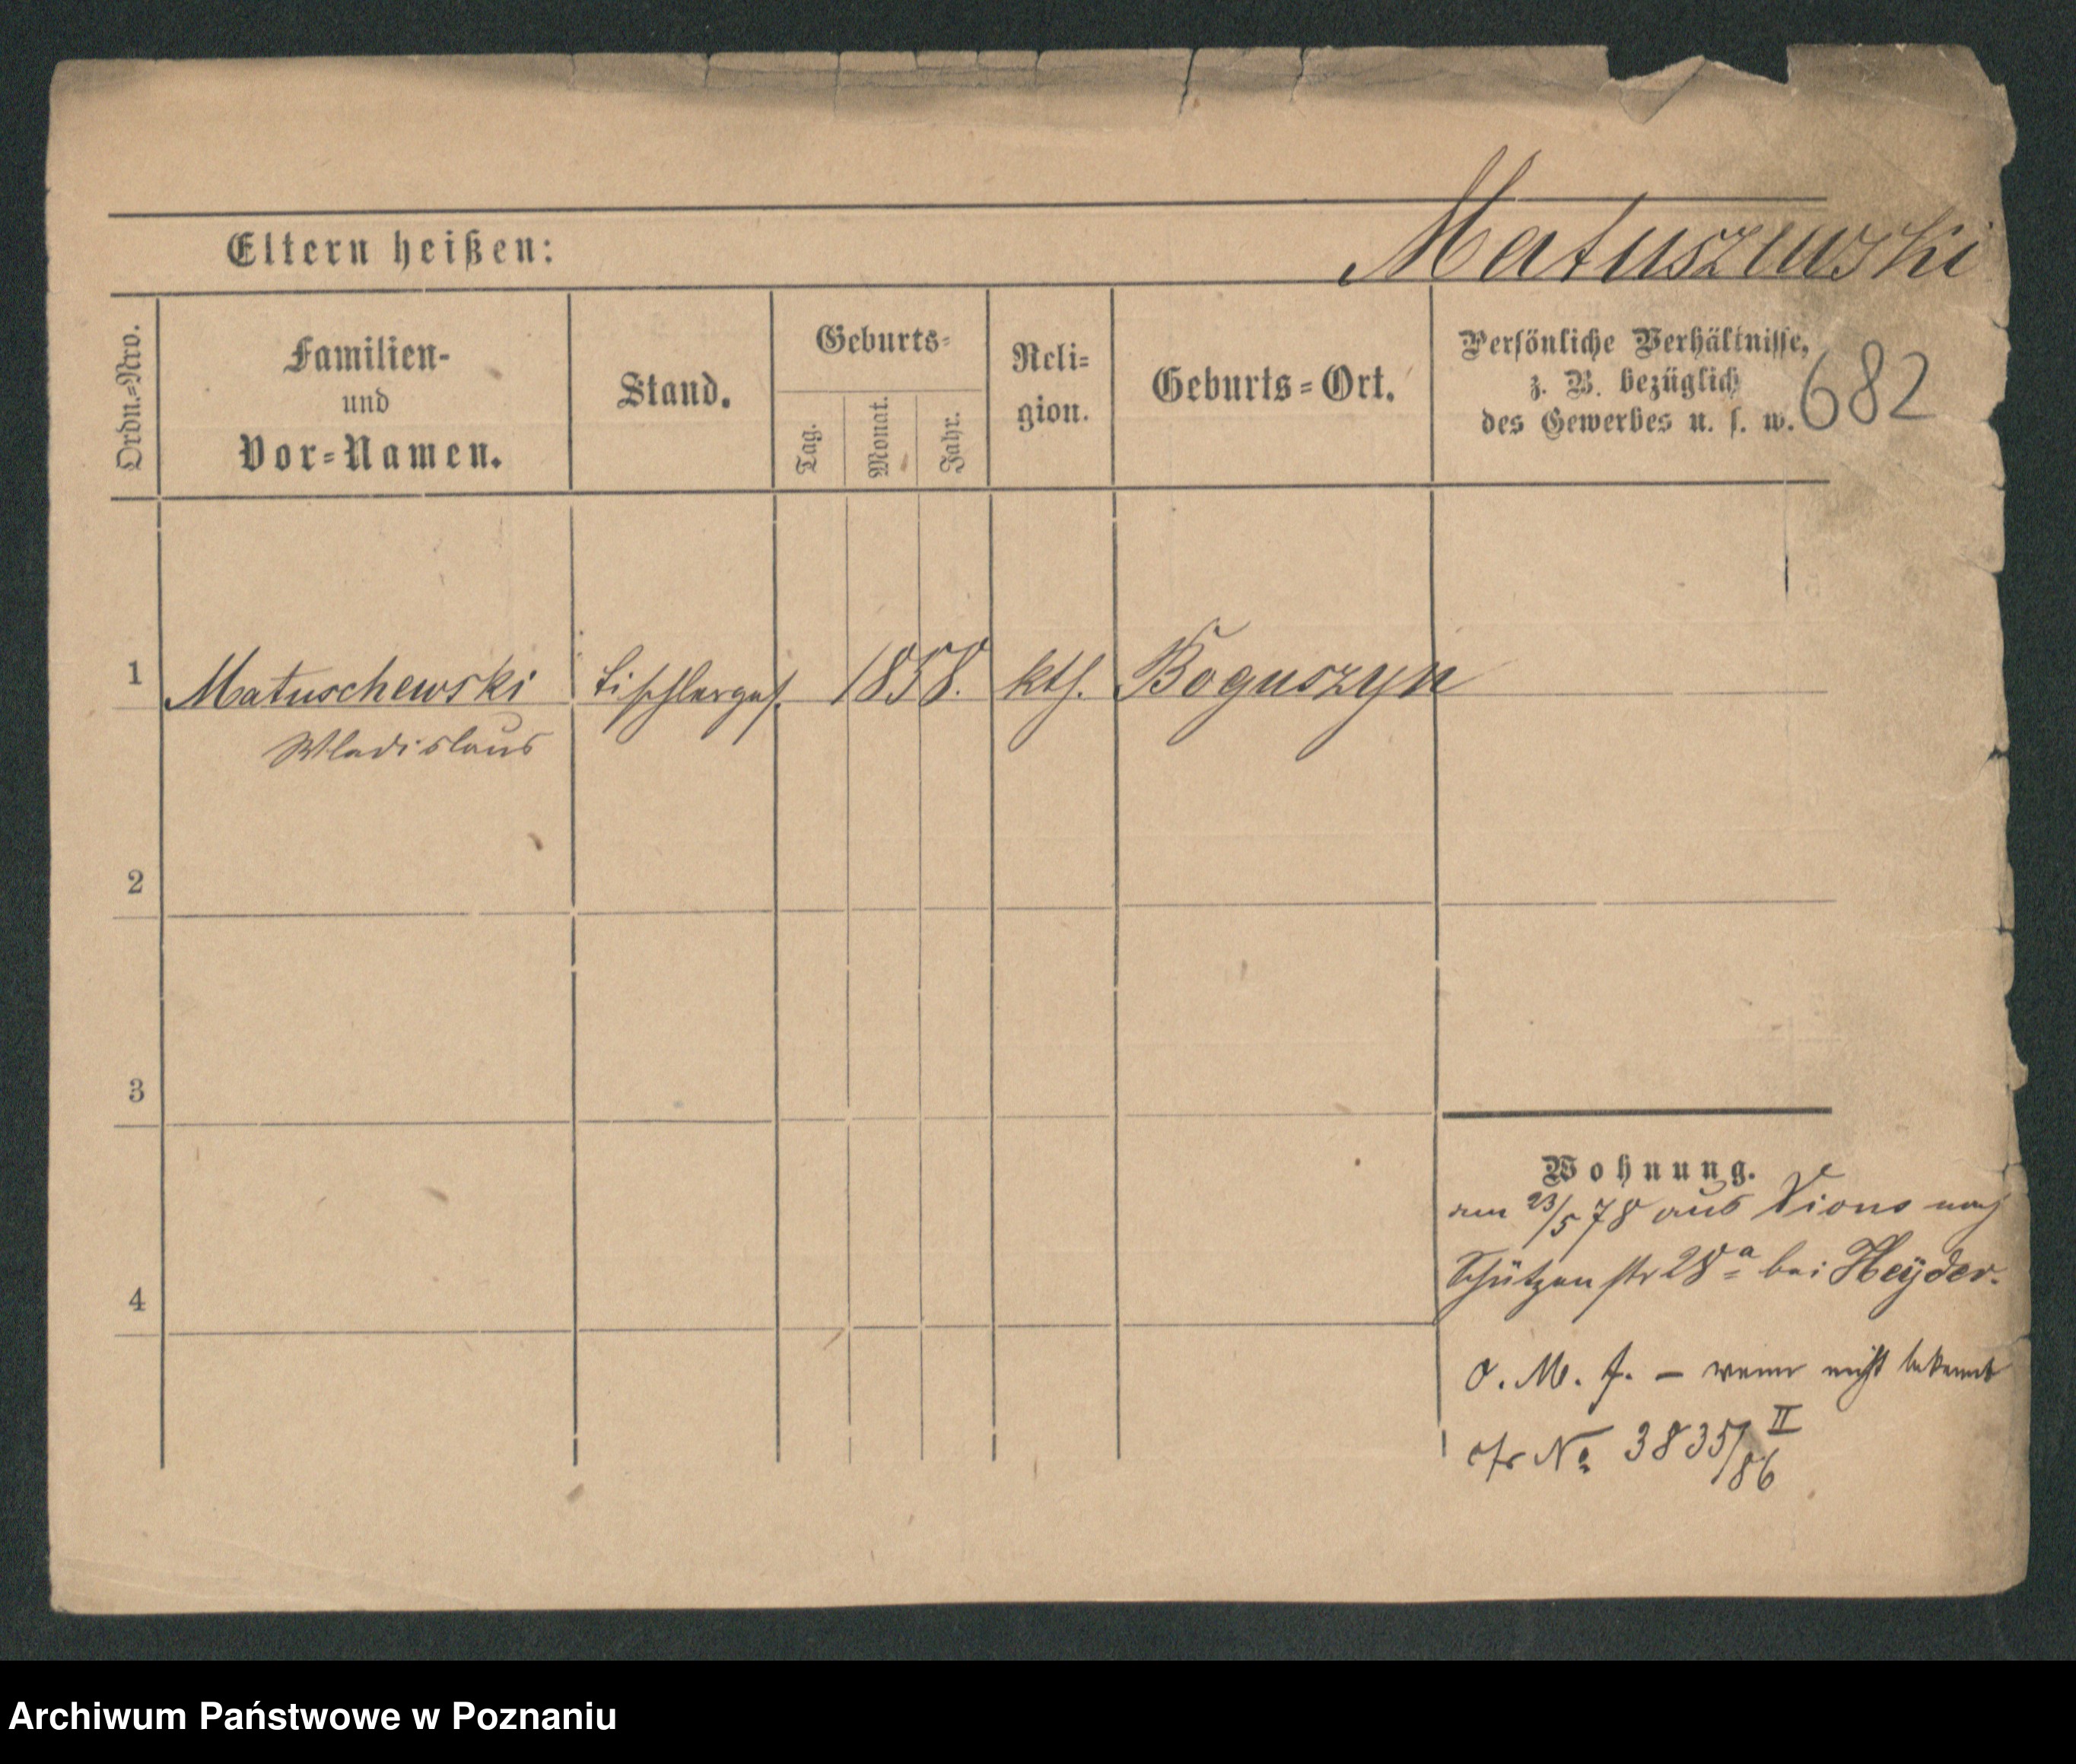 Matuszewski
Eltern heißen:
Ordn.=Nro.
Familien-
und
Vor-Namen.
Stand.
Geburts-
Tag.
Monat.
Jahr.
Reli-
gion.
Geburts-Ort.
Persönliche Verhältnisse,
z. B. bezüglich
des Gewerbes u. s. w.
682
1 Matuschewski Tischlerges. 1858. kth. Boguszyn
Wladislaus
2
3
4
Wohnung.
am 23/5 78 aus Xions nach
Schützenstr 28a bei Heyder.
O. M. f. – wenn nicht bekannt
cfr No 3835/86 II
Archiwum Państwowe w Poznaniu